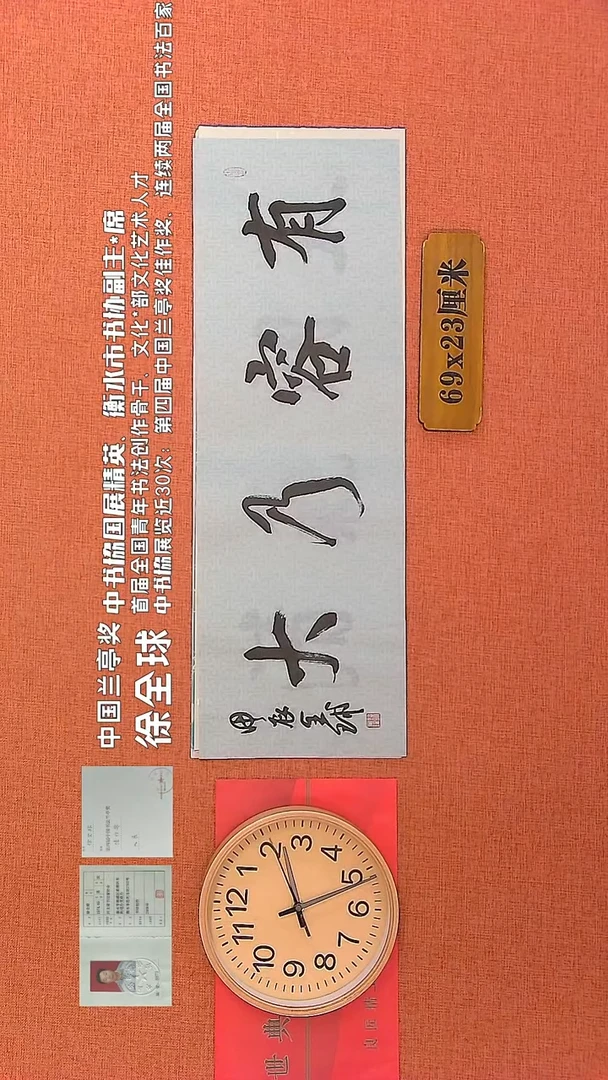 中国兰亭奖
徐全球
中书協国展精英、衡水市书协副主*席
首届全国青年书法创作骨干、文化*部文化艺术人才
中书協展览近30次；第四届中国兰亭奖佳作奖、连续两届全国书法百家
有容乃大
甲辰全球
69x23厘米
12 1 2 3 4 5 6 7 8 9 10 11
世典